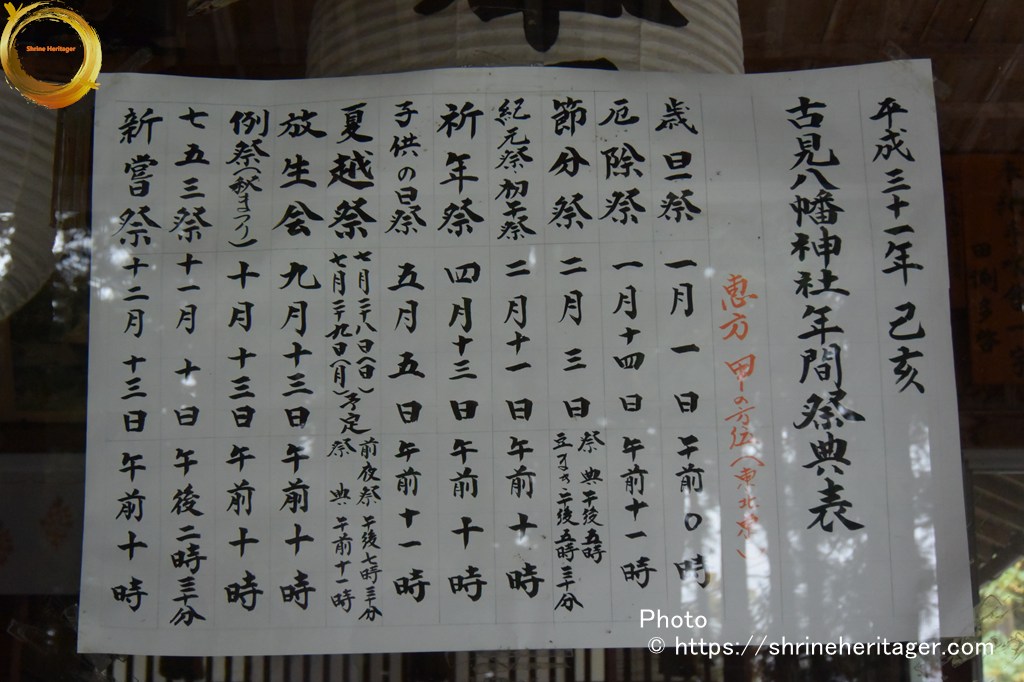 平成三十一年 己亥
古見八幡神社年間祭典表
恵方 甲の方位(東北東)
歳旦祭 一月一日 午前0時
厄除祭 一月十四日 午前十一時
節分祭 二月三日 祭典午後五時
豆まき午後五時三十分
紀元祭初午祭 二月十一日 午前十時
祈年祭 四月十三日 午前十時
子供の日祭 五月五日 午前十一時
夏越祭 七月二十八日(日) 前夜祭 午後七時三十分
七月二十九日(月)予定 祭典 午前十一時
放生会 九月十三日 午前十時
例祭(秋まつり) 十月十三日 午前十時
七五三祭 十一月十日 午後二時三十分
新嘗祭 十二月十三日 午前十時
Shrine Heritager
Photo
© https://shrineheritager.com/